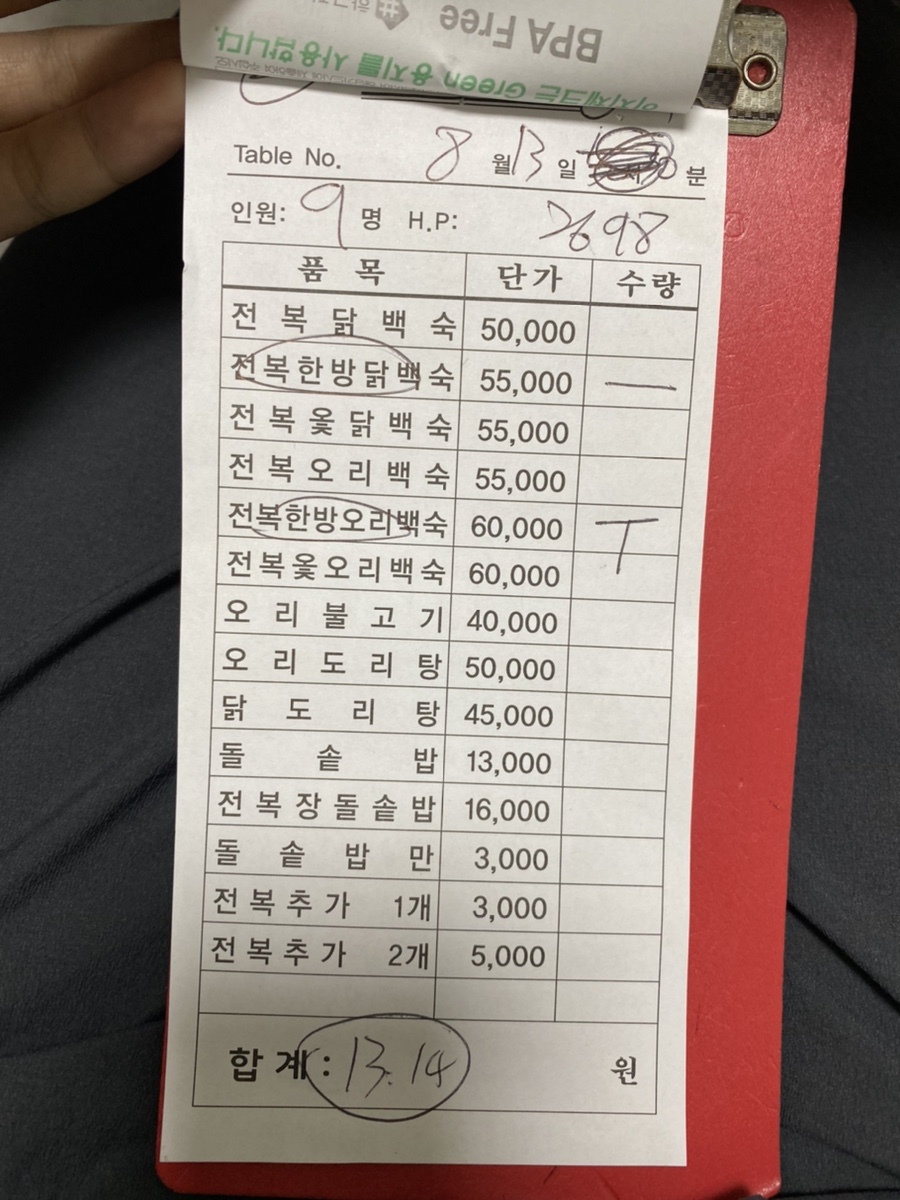 BPA Free
이지체크는 Green 용지를 사용합니다.
Table No. 8 월 13 일 분
인원: 9 명 H.P: 7698
품 목 단가 수량
전 복 닭 백 숙 50,000
전복한방닭백숙 55,000 一
전 복 옻 닭 백 숙 55,000
전 복 오 리 백 숙 55,000
전복한방오리백숙 60,000 T
전복옻오리백숙 60,000
오 리 불 고 기 40,000
오 리 도 리 탕 50,000
닭 도 리 탕 45,000
돌 솥 밥 13,000
전 복 장 돌 솥 밥 16,000
돌 솥 밥 만 3,000
전 복 추 가 1개 3,000
전 복 추 가 2개 5,000
합 계 : 13. 14 원